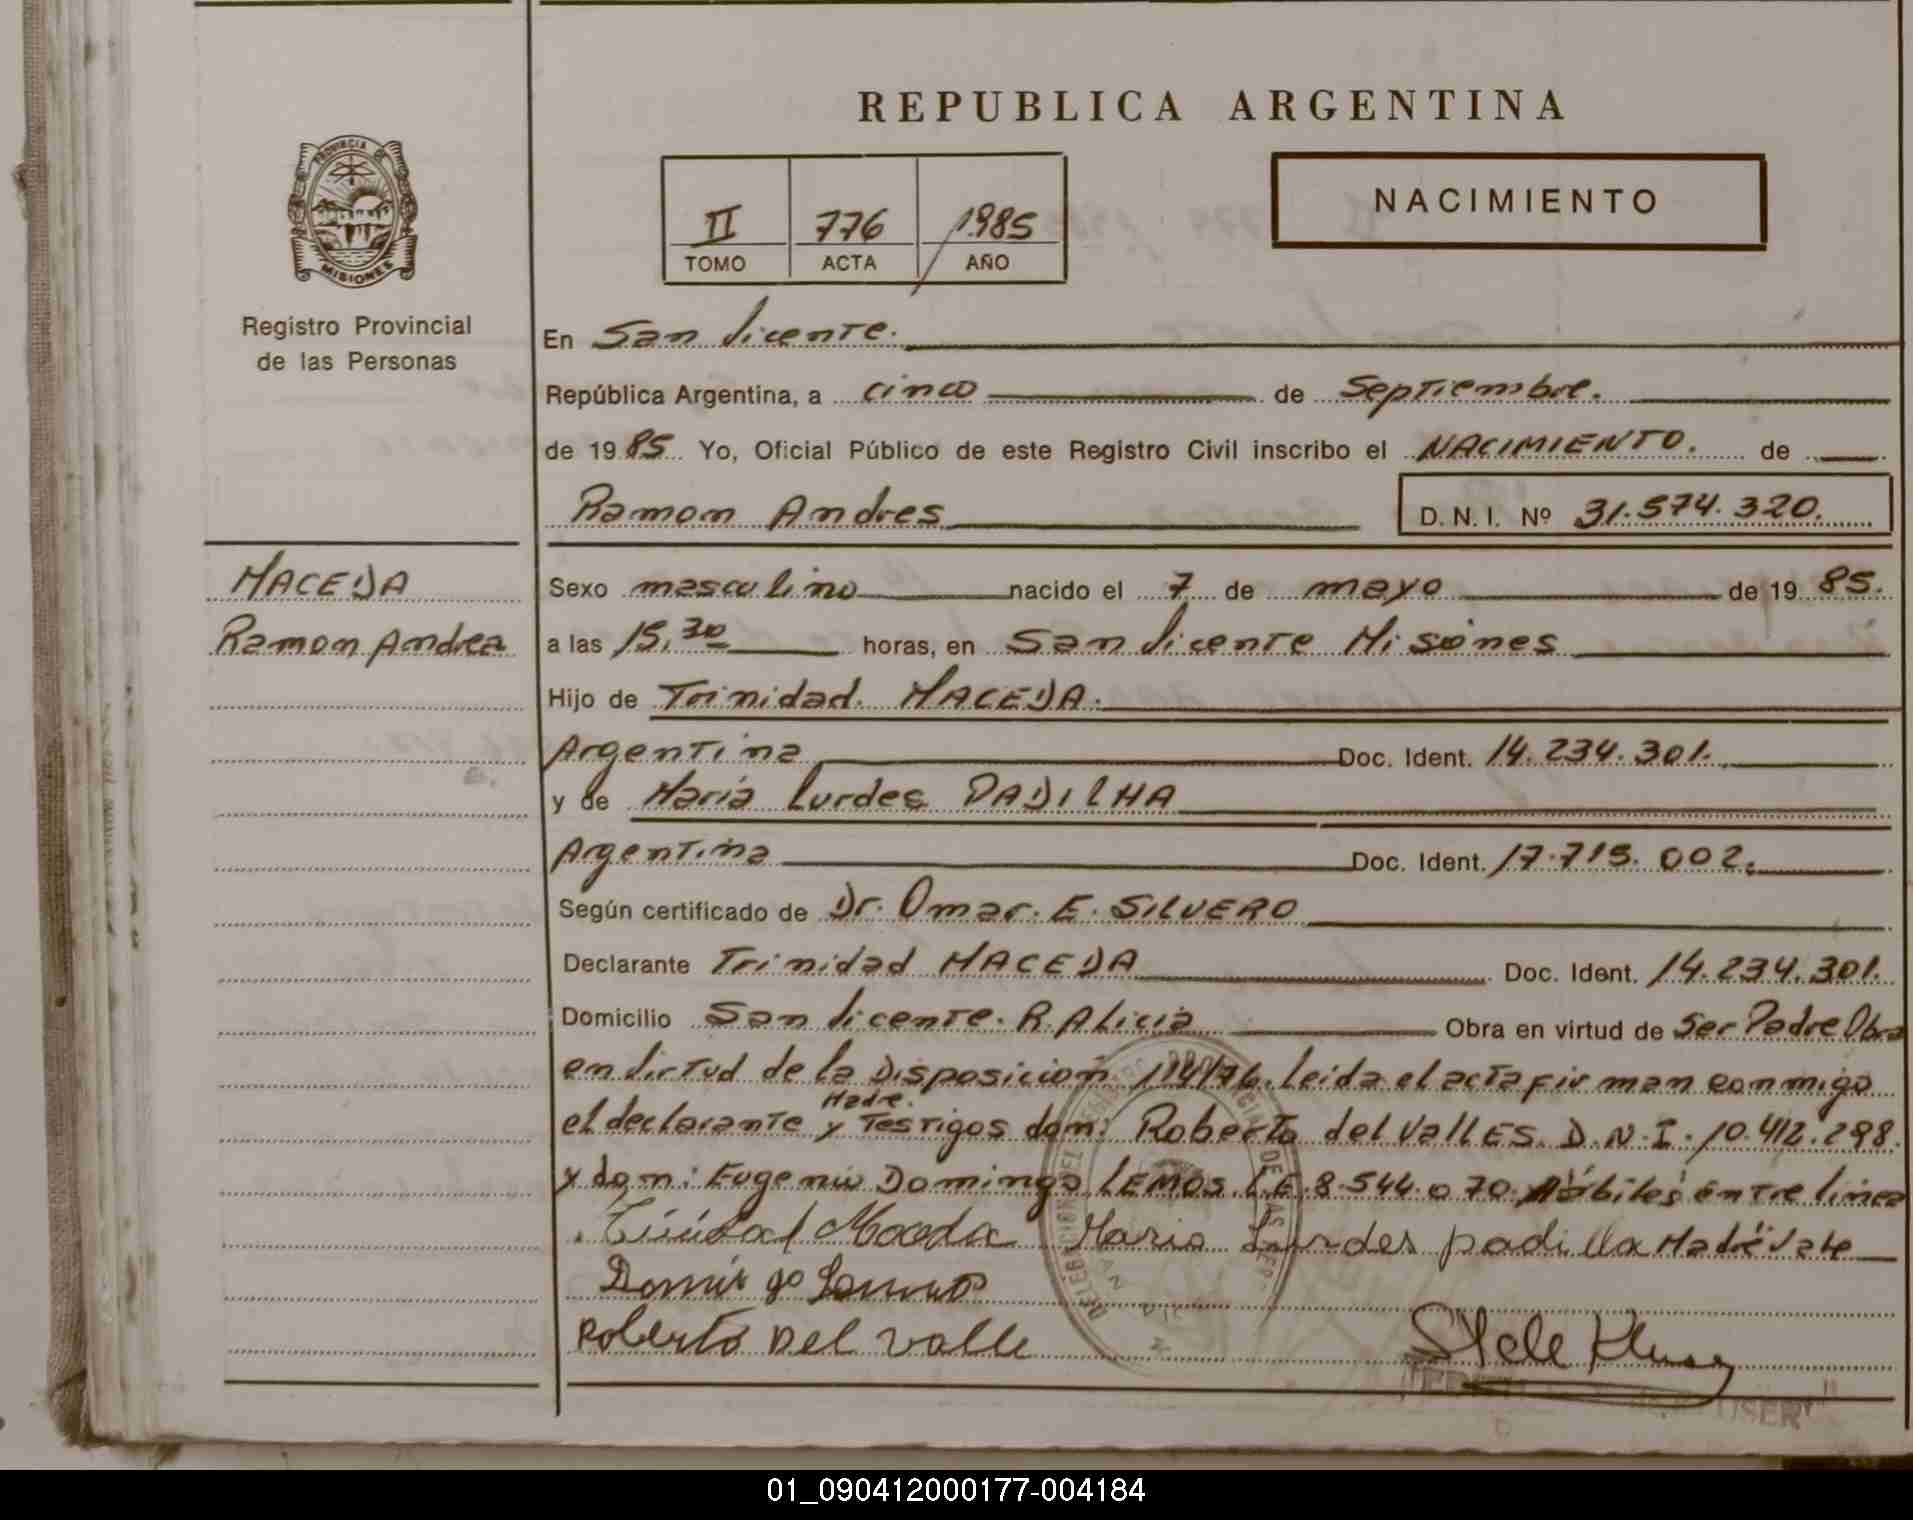 REPUBLICA ARGENTINA
PROVINCIA DE
MISIONES
Registro Provincial
de las Personas
II 776 1985
TOMO ACTA AÑO
NACIMIENTO
En San Vicente.
República Argentina, a cinco de Septiembre.
de 1985 Yo, Oficial Público de este Registro Civil inscribo el NACIMIENTO. de
Ramon Andres D.N.I. Nº 31.574.320.
MACEDA
Ramon Andrea
Sexo masculino nacido el 7 de mayo de 1985.
a las 15,30 horas, en San Vicente Misiones
Hijo de Trinidad. MACEDA.
Argentina Doc. Ident. 14.234.301.
y de Maria Lurdes PADILHA
Argentina Doc. Ident. 17.715.002.
Según certificado de Dr. Omar. E. SILVERO
Declarante Trinidad MACEDA Doc. Ident. 14.234.301.
Domicilio San Vicente. R. Alicia Obra en virtud de Ser Padre Obra
en Virtud de la Disposicion 114/76. Leida el acta firman conmigo
el declarante Madre. y Testigos don: Roberto del VallES. D.N.I. 10.412.298.
y don: Eugenio Domingo LEMOS. L.E. 8.544.070 Hábiles entre linea
Trinidad Maceda Maria Lurdes padilla Madre Vale
Domingo Lemos
Roberto Del Valle
01_090412000177-004184